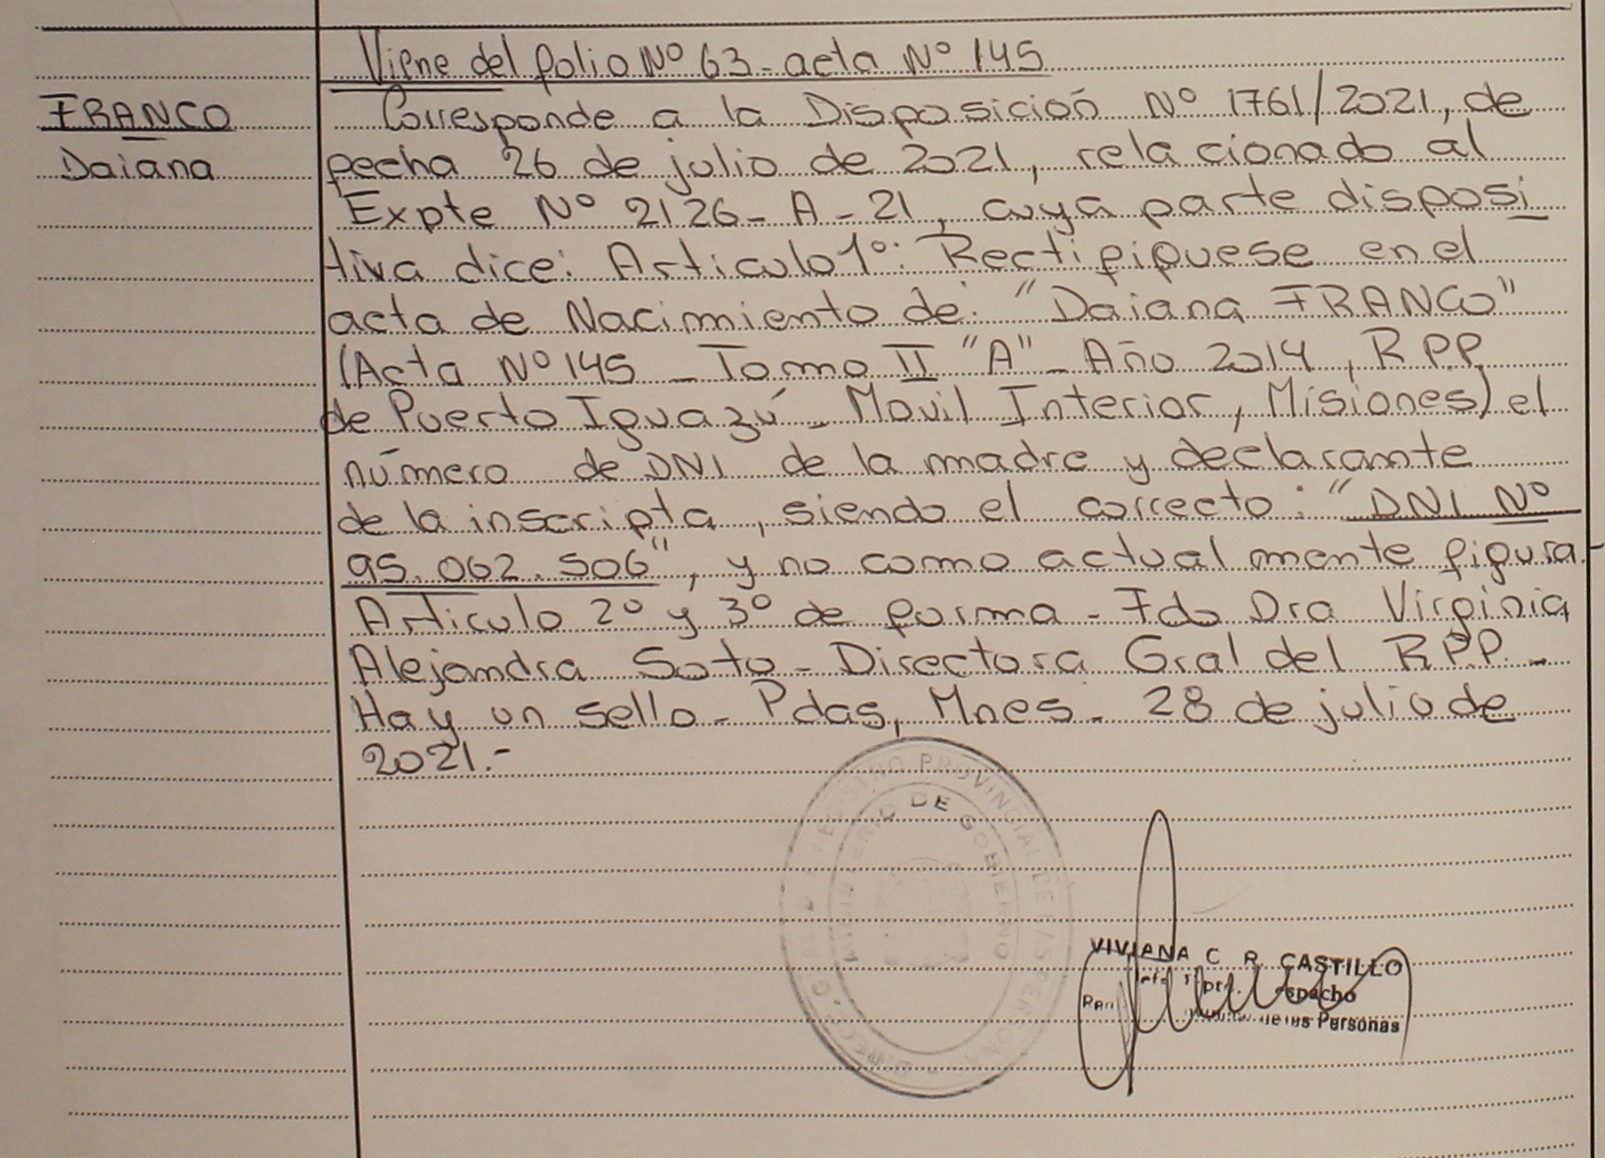 Viene del folio Nº 63 - acta Nº 145
FRANCO
Daiana
Corresponde a la Disposición Nº 1761/2021, de
fecha 26 de julio de 2021, relacionado al
Expte Nº 2126 - A - 21, cuya parte disposi
tiva dice: Articulo 1º: Rectifiquese en el
acta de Nacimiento de: "Daiana FRANCO"
(Acta Nº 145 - Tomo II "A" - Año 2014, RPP
de Puerto Iguazú - Movil Interior, Misiones) el
número de DNI de la madre y declarante
de la inscripta, siendo el correcto: "DNI Nº
95.062.506", y no como actualmente figura.-
Articulo 2º y 3º de forma - Fdo Dra Virginia
Alejandra Soto - Directora Gral del RPP -
Hay un sello - Pdas, Mnes - 28 de julio de
2021.-
REGISTRO PROVINCIAL DE LAS PERSONAS
MINISTERIO DE GOBIERNO
VIVIANA C. R. CASTILLO
de las Personas